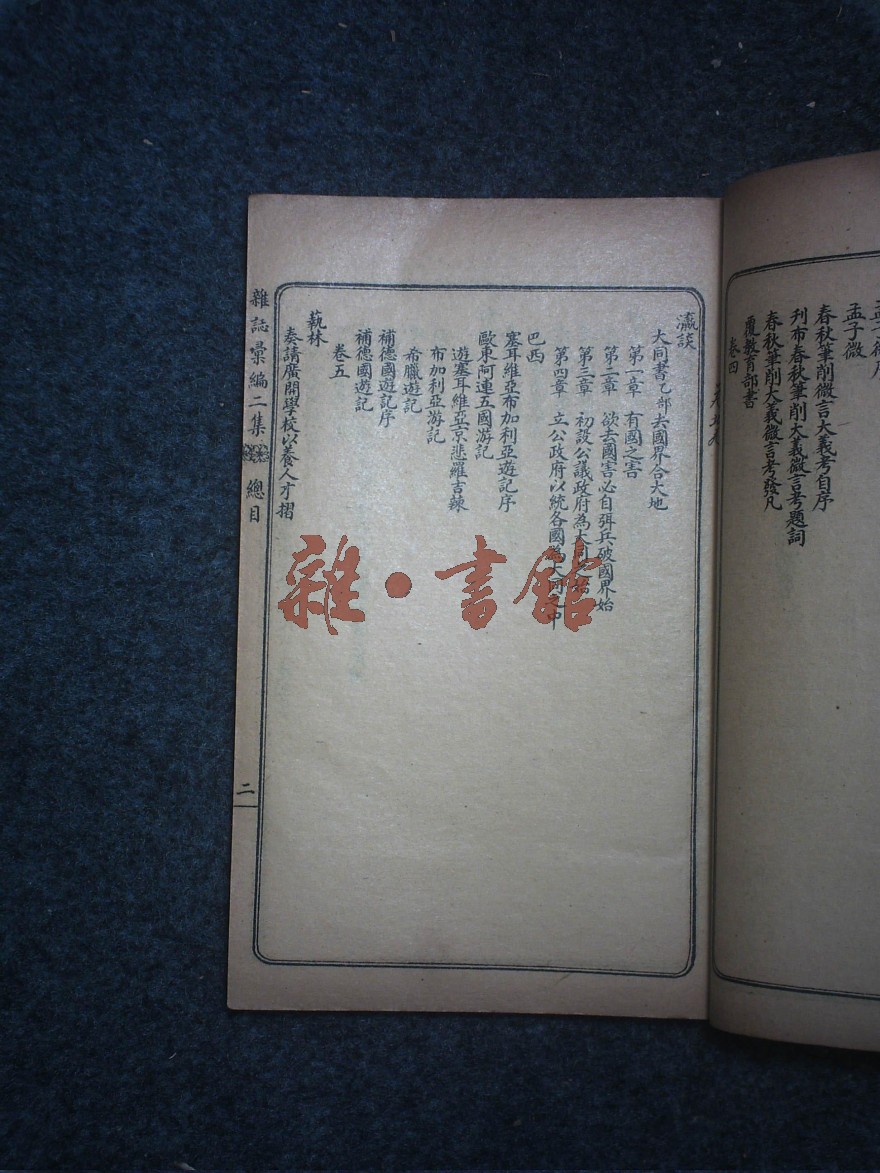 孟子微
春秋筆削微言大義考自序
刊布春秋筆削大義微言考題詞
春秋筆削大義微言考發凡
覆教育部書
卷四
瀛談
大同書乙部去國界合大地
第一章 有國之害
第二章 欲去國害必自弭兵破國界始
第三章 初設公議政府為大同之始
第四章 立公政府以統各國為大同之中
巴西
塞耳維亞布加利亞遊記序
歐東阿連五國游記
遊塞耳維亞京悲羅吉辣
布加利亞游記
希臘遊記
補德國遊記序
補德國遊記
卷五
藝林
奏請廣開學校以養人才摺
雜誌彙編二集 總目
二
雜·書館